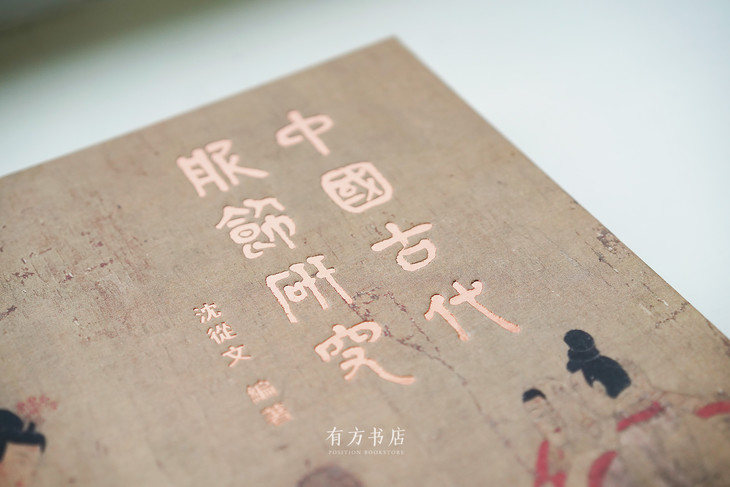 中國古代
服飾研究
沈從文 編著
有方书店
POSITION BOOKSTORE